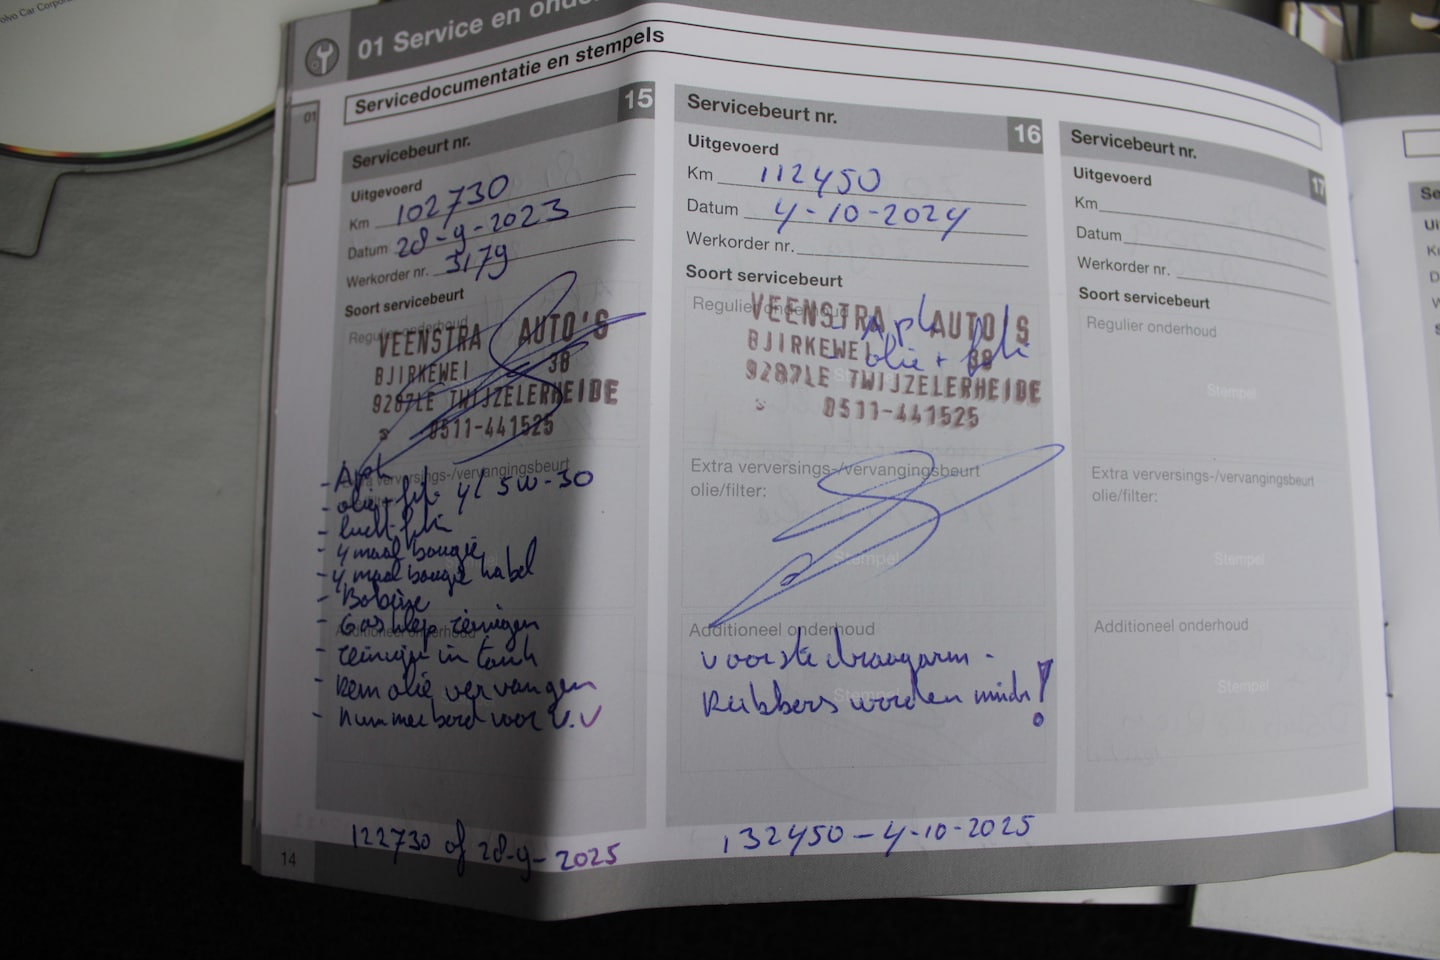 olvo Car Corpor
01 Service en onde
Servicedocumentatie en stempels
01
Servicebeurt nr.
15
Uitgevoerd
Km 102730
Datum 28-9-2023
Werkorder nr. 3179
Soort servicebeurt
Regulier onderhoud
VEENSTRA AUTO'S
BJIRKEWEI 38
9287LE TWIJZELERHEIDE
0511-441525
- Apk
- olie + filt 4l 5W-30
- lucht filt
- 4 maal bougie
- 4 maal bougie kabel
- Bobine
- Gasklep reinigen
- reinige in tank
- Rem olie vervangen
- nummerbord voor V.V
122730 of 28-9-2025
14
Servicebeurt nr.
16
Uitgevoerd
Km 112450
Datum 4-10-2024
Werkorder nr.
Soort servicebeurt
Regulier onderhoud
VEENSTRA AUTO'S
- Apk
BJIRKEWEI 38
- olie + filt
9287LE TWIJZELERHEIDE
s 0511-441525
Extra verversings-/vervangingsbeurt
olie/filter:
Stempel
Additioneel onderhoud
voorste draagarm -
Rubbers worden minder!
Stempel
132450 - 4-10-2025
Servicebeurt nr.
17
Uitgevoerd
Km
Datum
Werkorder nr.
Soort servicebeurt
Regulier onderhoud
Stempel
Extra verversings-/vervangingsbeurt
olie/filter:
Stempel
Additioneel onderhoud
Stempel
Se